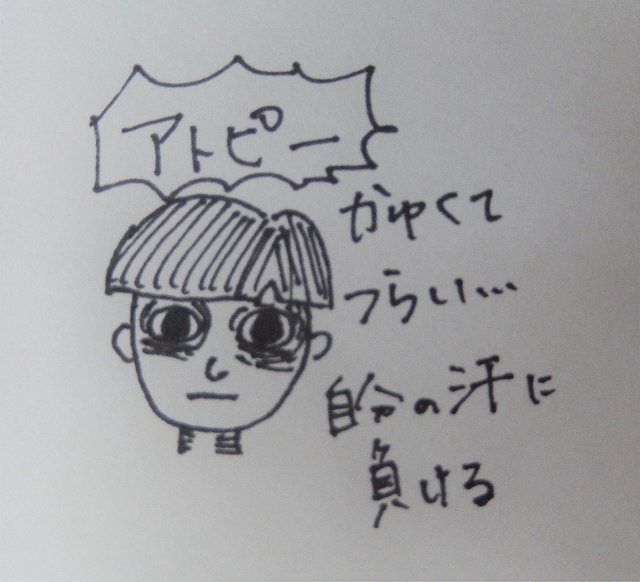 アトピー
かゆくて
つらい…
自分の汗に
負ける